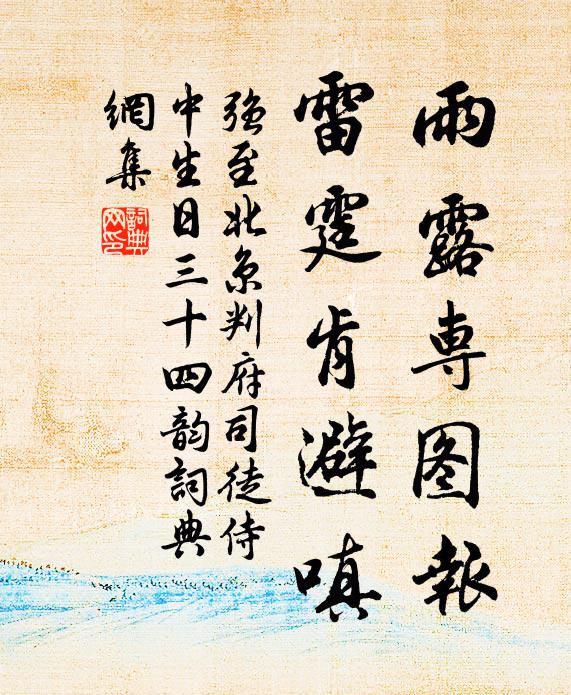 雨露専图報
雷霆肯避嗔
強至北京判府司徒侍
中生日三十四韵詞典
網集
詞典网印